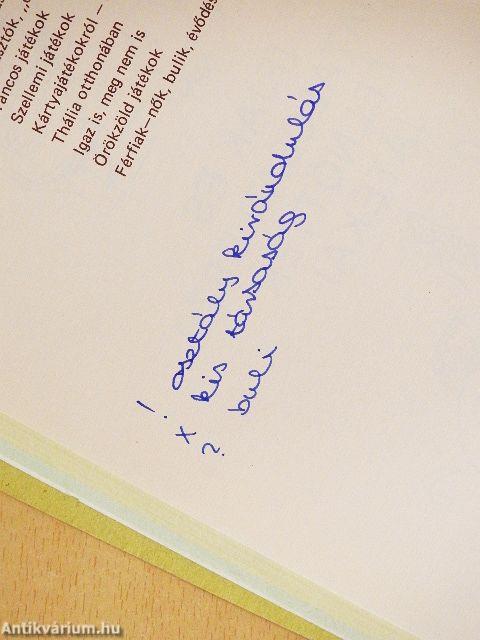 sztók,
ancos játékok
Szellemi játékok
Kártyajátékokról –
Thália otthonában
Igaz is, meg nem is
Örökzöld játékok
Férfiak—nők, bulik, évődés
! osztály kirándulás
x kis társaság
? buli
Antikvárium.hu